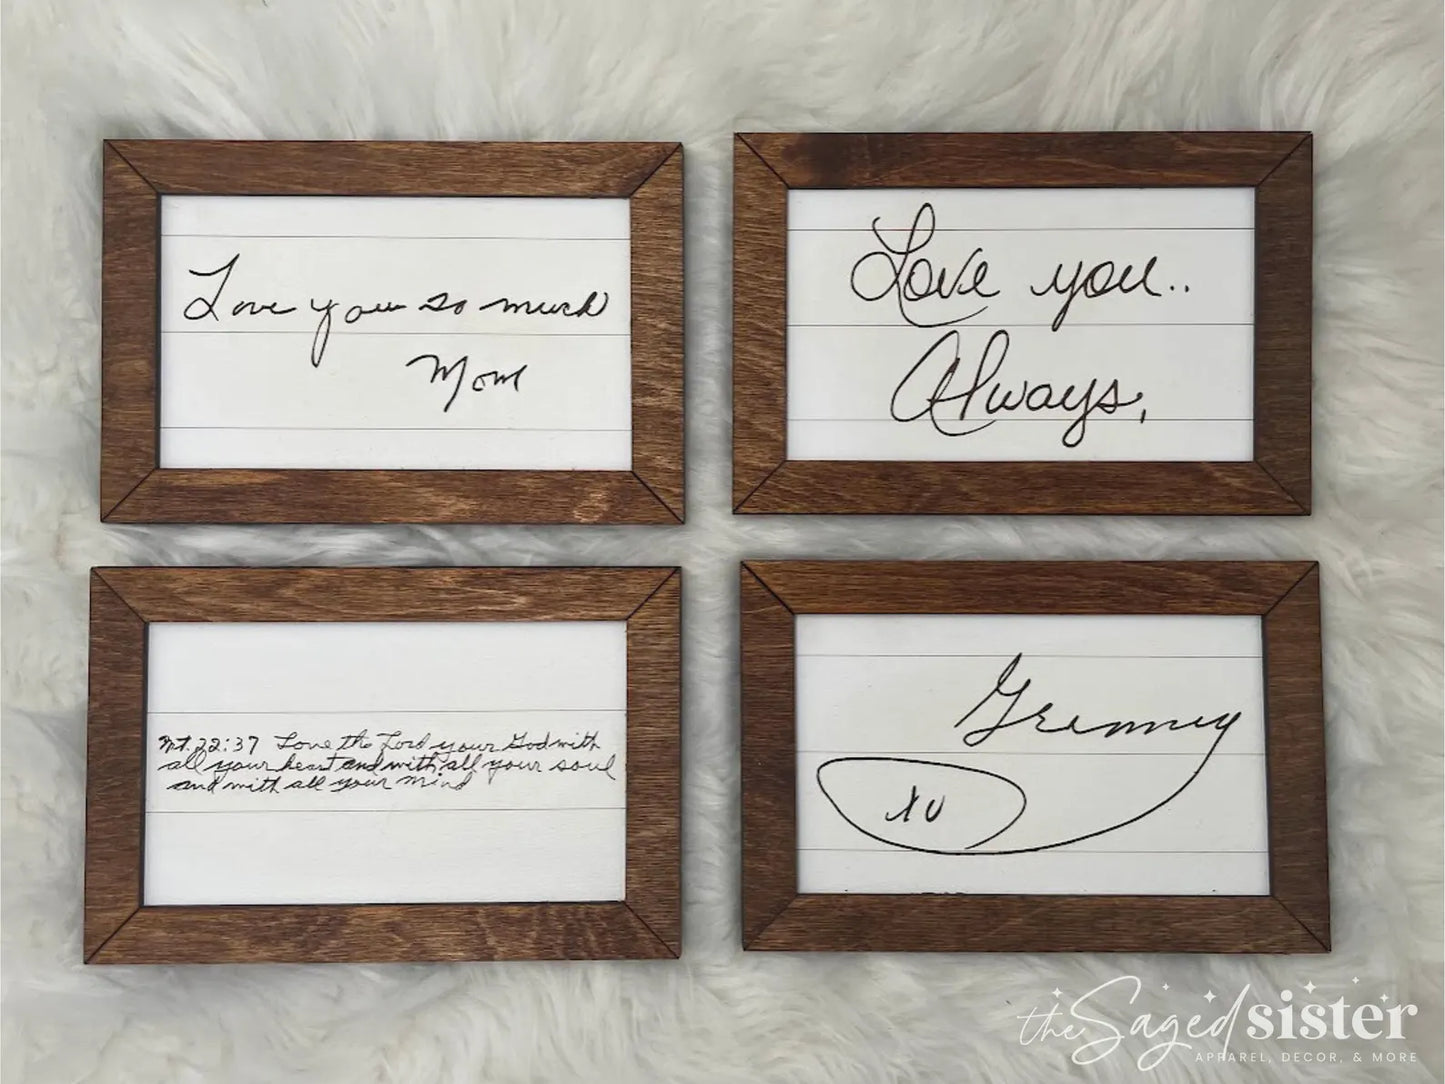 Love you so much
Mom
Love you..
Always,
Mt. 22:37 Love the Lord your God with
all your heart and with all your soul
and with all your mind
Gremmey
XO
the Saged sister
APPAREL, DECOR, & MORE